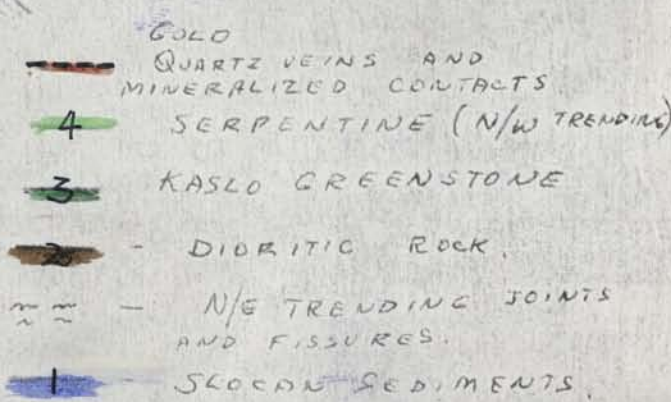 GOLD
QUARTZ VEINS AND
MINERALIZED CONTACTS
4 SERPENTINE (N/W TRENDING)
3 KASLO GREENSTONE
2 - DIORITIC ROCK.
- N/E TRENDING JOINTS
AND FISSURES.
1 - SLOCAN SEDIMENTS.